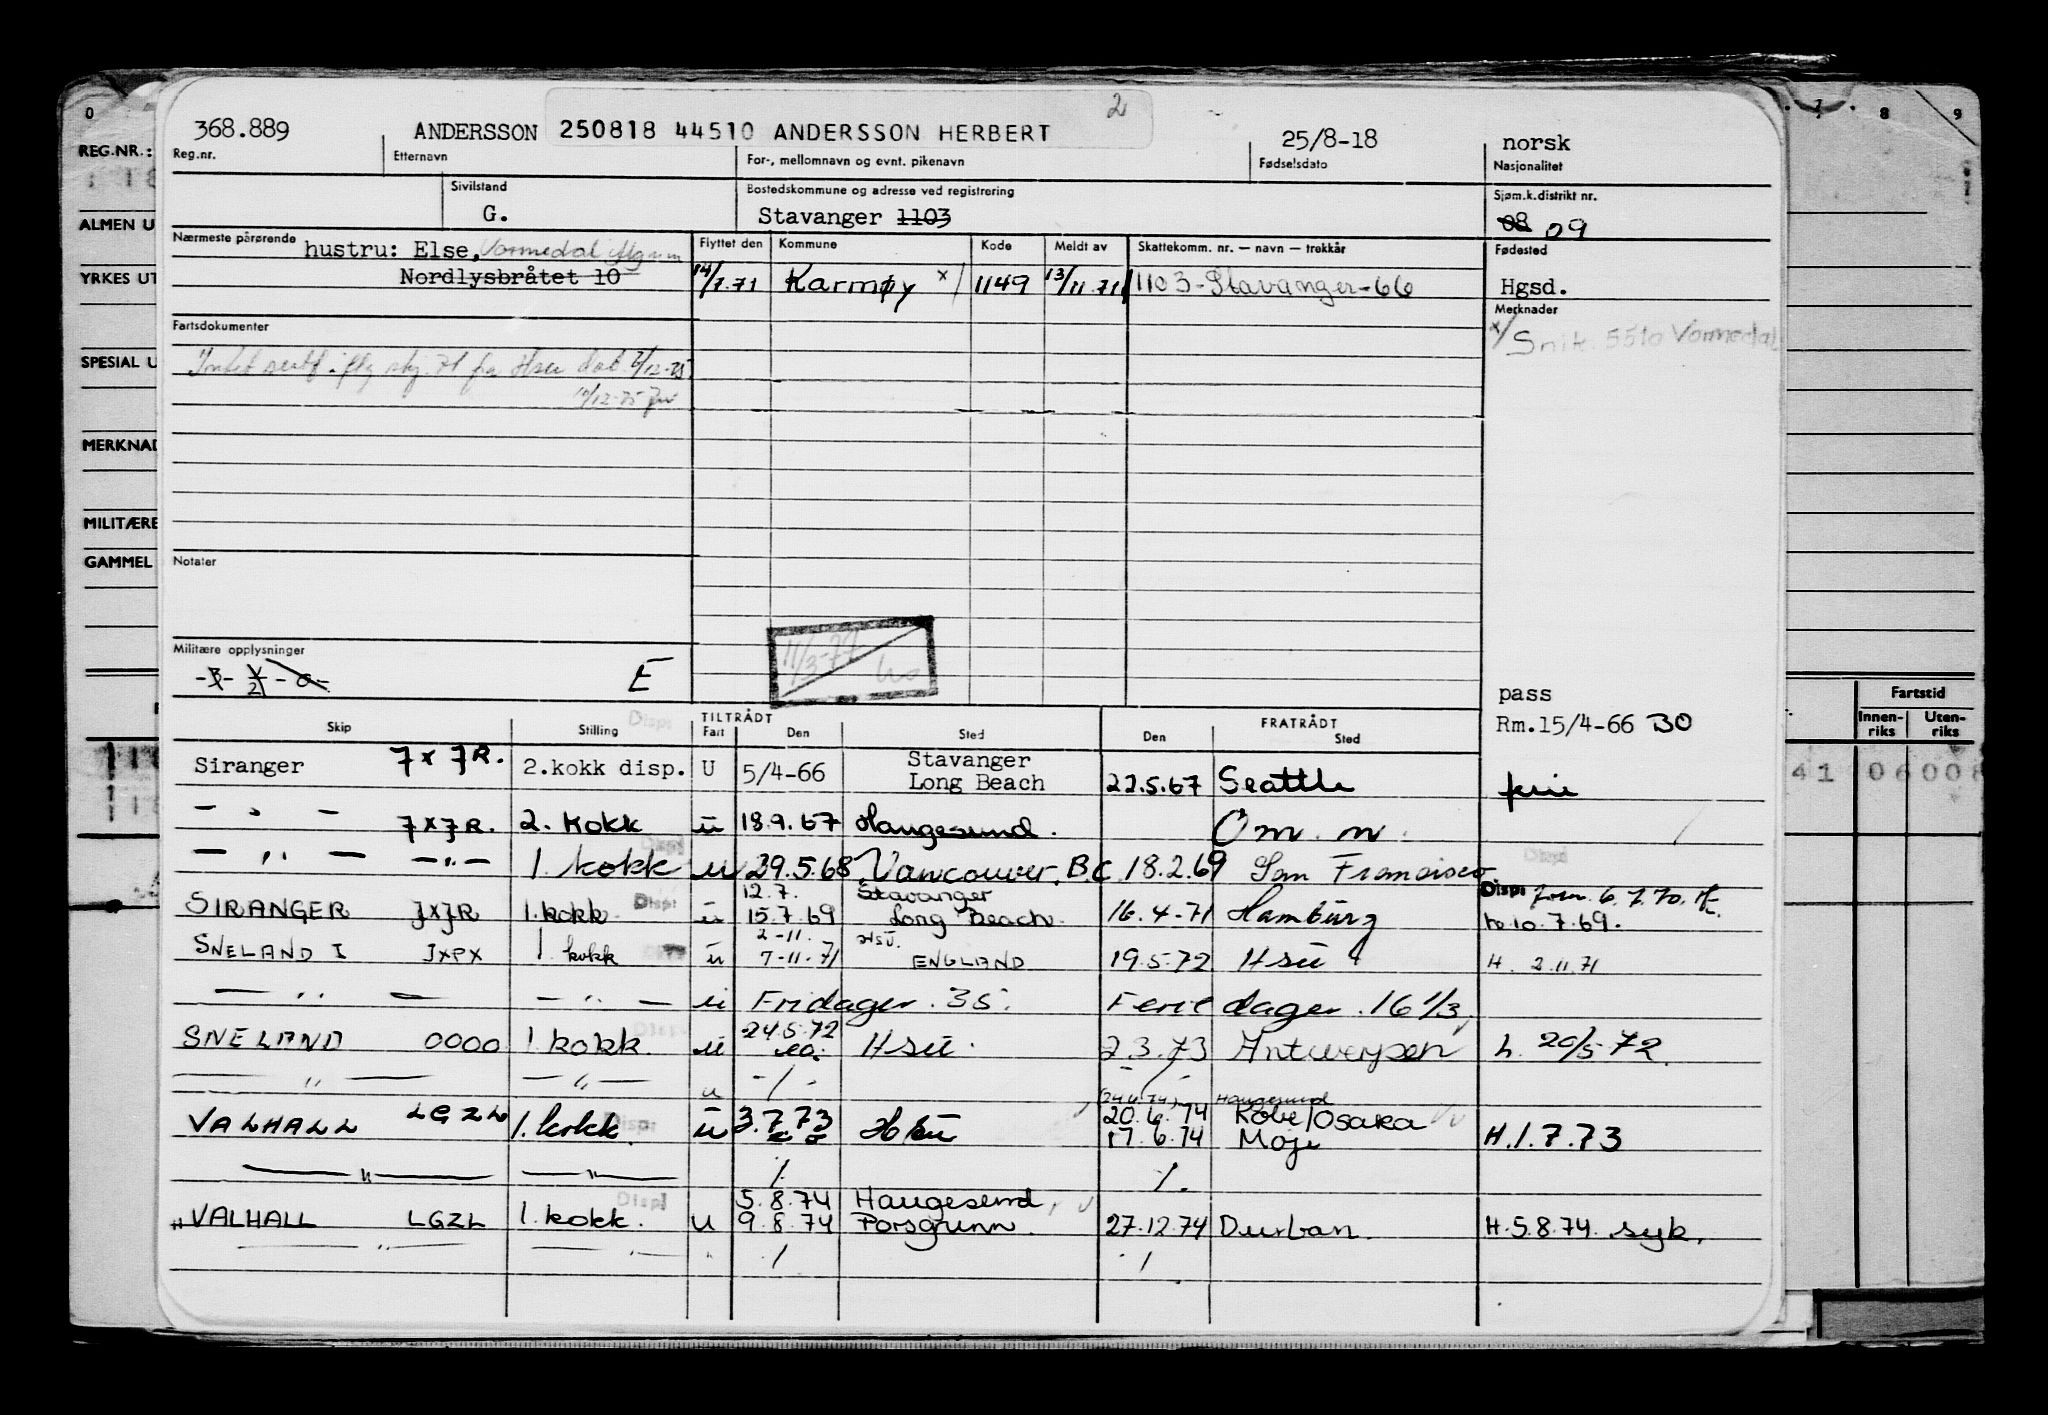 2
368.889 ANDERSSON 250818 44510 ANDERSSON HERBERT 25/8-18 norsk
Reg.nr. Etternavn For-, mellomnavn og evnt. pikenavn Fødselsdato Nasjonalitet
Sivilstand Bostedskommune og adresse ved registrering Sjøm.k.distrikt nr.
G. Stavanger 1103 08 09
Nærmeste pårørende hustru: Else, Vormedal Flyttet den Kommune Kode Meldt av Skattekomm. nr. — navn — trekkår Fødested
Nordlysbråtet 10 14/7.71 Karmøy x/ 1149 13/11.71 1103-Stavanger-66 Hgsd.
Fartsdokumenter Merknader
x/ Snik. 5510 Vormedal
10/12-75
Notater
11/3-77
Militære opplysninger
E
pass
Rm.15/4-66 BO
Skip Stilling Disp. TILTRÅDT Fart Den Sted FRATRÅDT Den Sted
Siranger JXJR. 2.kokk disp. U 5/4-66 Stavanger Long Beach 22.5.67 Seattle ferie
— " — JXJR. 2. kokk u 18.9.67 Haugesund. Om. m.
— " — — " — 1. kokk u 29.5.68 Vancouver. B.C. 18.2.69 San Francisco
SIRANGER JXJR 1. kokk Disp. u 12.7. 15.7.69 Stavanger Long Beach. 16.4-71 Hamburg Disp: 6.7.70. 10.7.69.
SNELAND I JXPX 1. kokk u 2-11. 7-11-71 Hsu. ENGLAND 19.5.72 Hsu H. 2.11.71
— " — — " — u Fridager. 35. Ferie dager. 16 1/3
SNELAND OOOO 1. kokk. u 24.5.72 Hsu. 2.3.73 Antwerpen h. 20/5-72.
— " — — " — u -/- -/-
(24.6.74) Haugesund
VALHALL LGZL 1. kokk. Disp. u 3.7.73 Hsu 20.6.74 Kobe/Osaka 17.6.74 Moji H.1.7.73
— " — — " — /. /.
VALHALL LGZL 1. kokk. Disp. u 5.8.74 9.8.74 Haugesund, Porsgrunn. 27.12.74 Durban. H.5.8.74. syk.
— " — — " — " / /
0
REG.NR.:
ALMEN U
YRKES UT
SPESIAL U
MERKNAD
MILITÆRE
GAMMEL
7 8 9
Fartstid
Innenriks Utenriks
41 06008